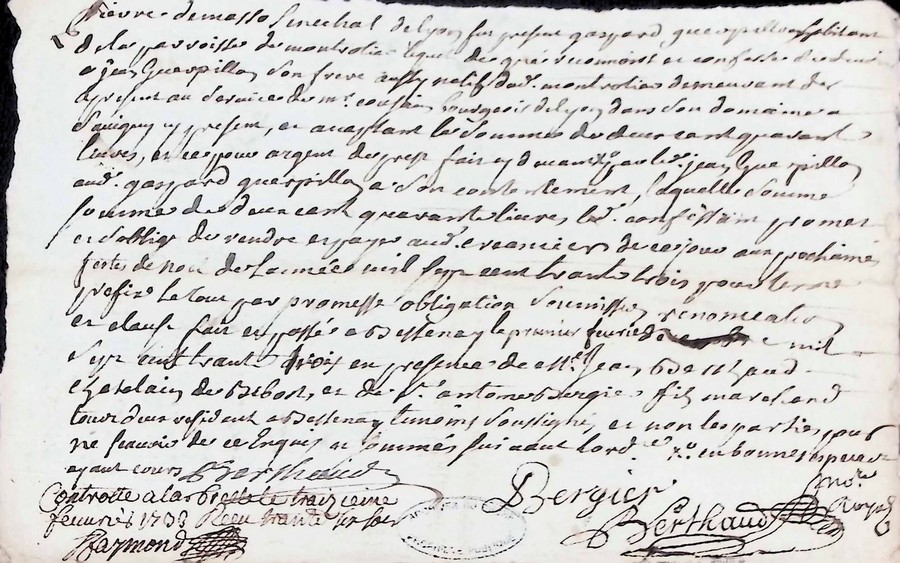 pierre demasso senechal de lyon fut present gaspard guerpillon habitant
de la parroisse de montrotier lequel de gré reconnoist et confesse devoir
a jean guerpillon son frere aussy natif dud. montrotier demeurant des
apresent au service de mr. bourgeois de lyon dans son domaine a
savigny cy present, et acceptant la somme de deux cent quarante
livres, et ce pour argent de prest fait cy devant par led. jean Guerpillon
aud. gaspard guerpillon a son contentement, laquelle somme
somme de deux cent quarante livres led. confessant promet
et s'oblige de rendre et payer aud. creancier de ce jour aux prochaines
festes de noel de l'année mil sept cent trante trois pour terme
prefix le tout par promesse obligation soumission renonciation
et clause fait et passé a Bessenay le premier fevrier mil
sept cent trante trois en presence de me. Jean Berthaud
chatelain de et de sr. antoine Bergier fils marchand
residant a Bessenay temoins soussignés, et non les parties pour
ne scavoir de ce enquis et sommés suivant l'ord.
ayant cours Berthaud
Bergier
Berthaud
no.re Royal
Controllé a la Bresle le traizieme
fevvrier 1733 Receu trante
Raymond